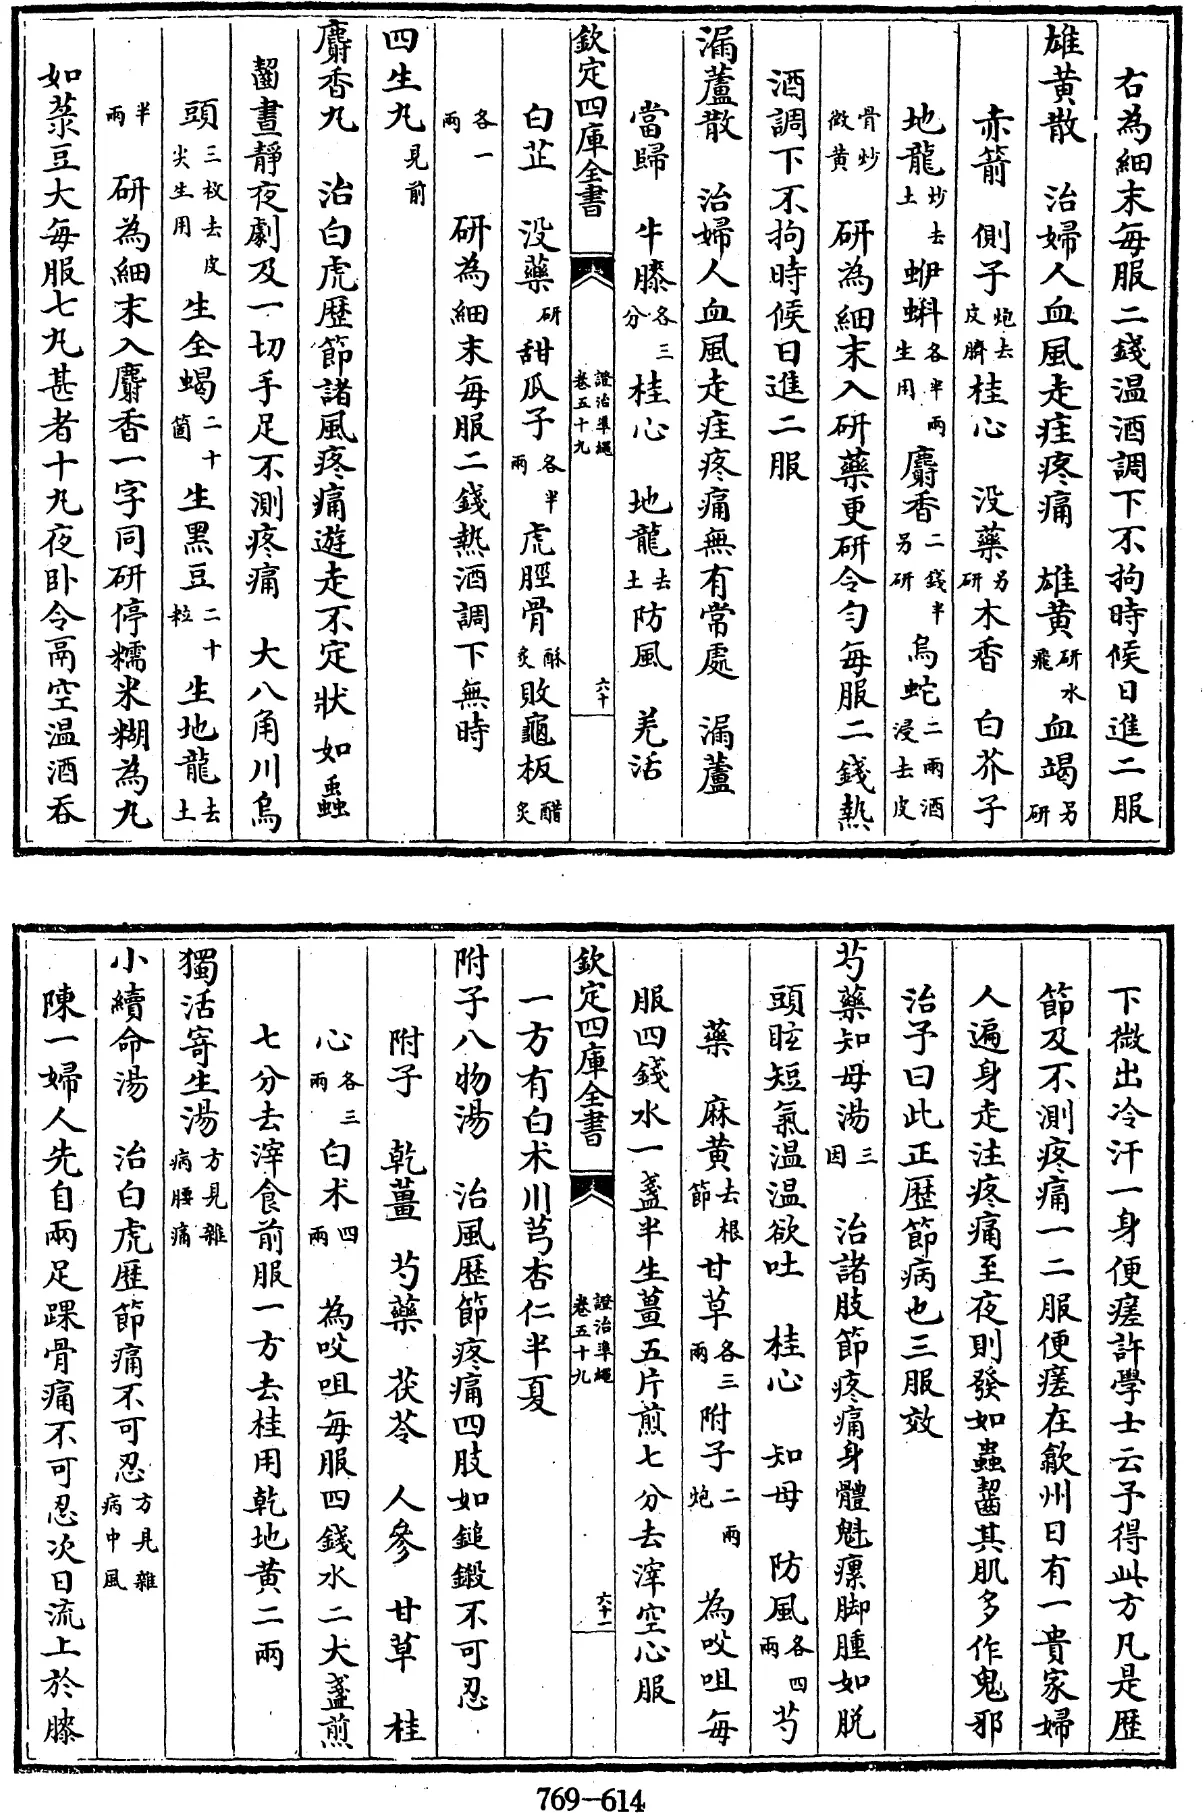 右為細末每服二錢温酒調下不拘時候日進二服
雄黄散　治婦人血風走疰疼痛　雄黄研水飛血竭另研
赤箭　側子炮去皮臍桂心　没藥另研木香　白芥子
地龍炒去土蛜蝌各半兩生用麝香二錢半另研烏蛇二兩酒浸去皮
骨炒微黄　研為細末入研藥更研令匀每服二錢熱
酒調下不拘時候日進二服
漏蘆散　治婦人血風走疰疼痛無有常處　漏蘆
當歸　牛膝各三分桂心　地龍去土防風　羌活
欽定四庫全書　證治準繩卷五十九　六十
白芷　没藥研甜瓜子各半兩虎脛骨酥炙敗龜板醋炙
各一兩　研為細末每服二錢熱酒調下無時
四生丸見前
麝香丸　治白虎歴節諸風疼痛遊走不定狀如蟲
齧晝靜夜劇及一切手足不測疼痛　大八角川烏
頭三枚去皮尖生用　生全蝎二十箇　生黑豆二十粒　生地龍去土
半兩　研為細末入麝香一字同研停糯米糊為丸
如菉豆大每服七丸甚者十丸夜卧令鬲空温酒吞
下微出冷汗一身便瘥許學士云予得此方凡是歴
節及不測疼痛一二服便瘥在歙州日有一貴家婦
人遍身走注疼痛至夜則發如蟲齧其肌多作鬼邪
治予曰此正歴節病也三服效
芍藥知母湯三因　治諸肢節疼痛身體魁瘰脚腫如脱
頭眩短氣温温欲吐　桂心　知母　防風各四兩芍
藥　麻黄去根節　甘草各三兩附子二兩炮　為㕮咀每
服四錢水一盞半生薑五片煎七分去滓空心服
欽定四庫全書　證治準繩卷五十九　六十一
一方有白术川芎杏仁半夏
附子八物湯　治風歴節疼痛四肢如鎚鍛不可忍
附子　乾薑　芍藥　茯苓　人參　甘草　桂
心各三兩白术四兩　為㕮咀每服四錢水二大盞煎
七分去滓食前服一方去桂用乾地黄二兩
獨活寄生湯方見雜病腰痛
小續命湯　治白虎歴節痛不可忍方見雜病中風
陳一婦人先自兩足踝骨痛不可忍次日流上於膝
769—614